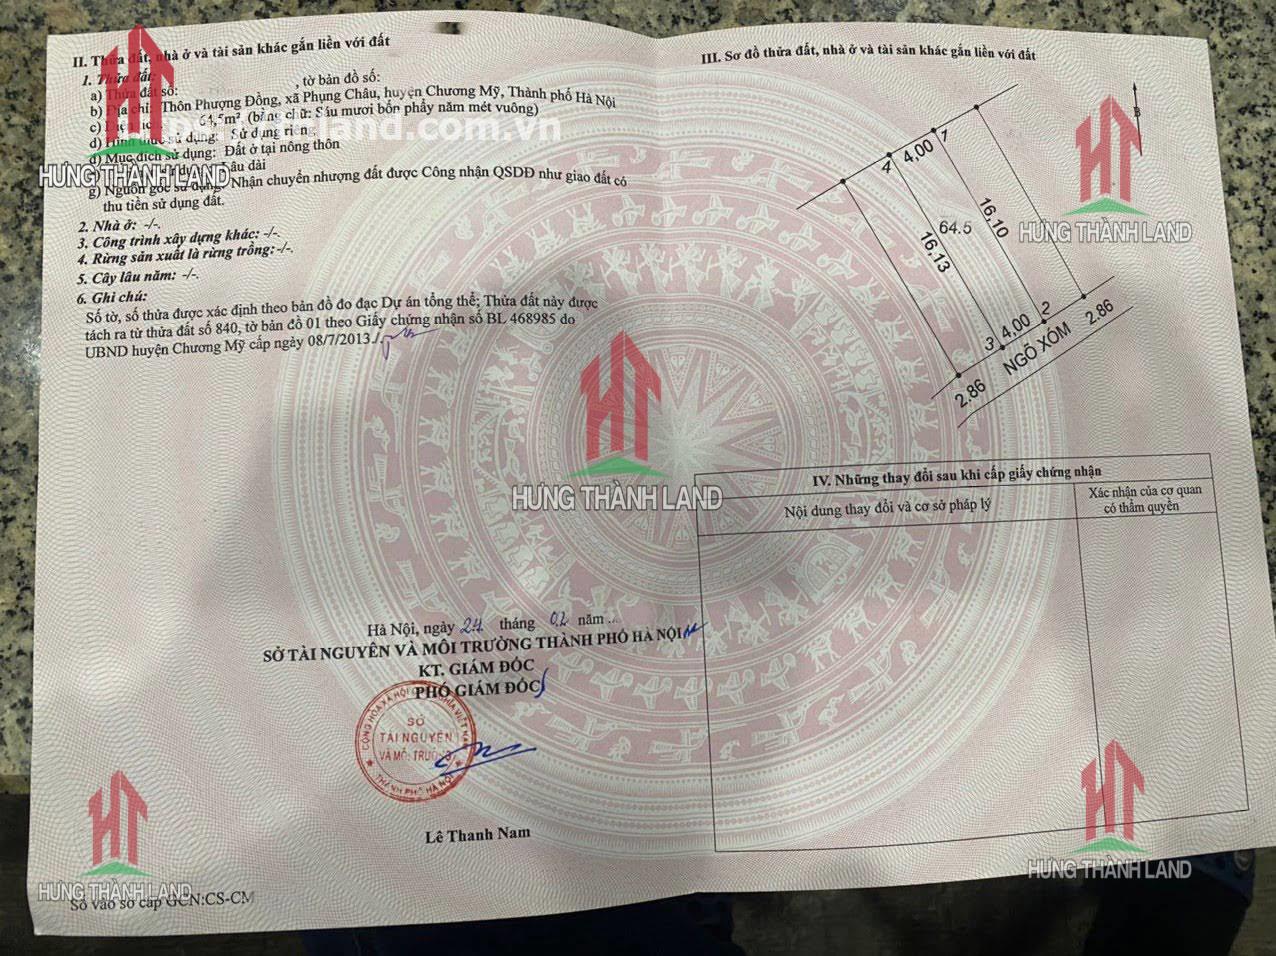 II. Thửa đất, nhà ở và tài sản khác gắn liền với đất
1. Thửa đất:
a) Thửa đất số: , tờ bản đồ số:
b) Địa chỉ: Thôn Phượng Đồng, xã Phụng Châu, huyện Chương Mỹ, Thành phố Hà Nội
c) 64,5m² (bằng chữ: Sáu mươi bốn phẩy năm mét vuông)
d) Hình thức sử dụng: Sử dụng riêng
đ) Mục đích sử dụng: Đất ở tại nông thôn
sử dụng: Lâu dài
g) Nguồn gốc sử dụng: Nhận chuyển nhượng đất được Công nhận QSDĐ như giao đất có
thu tiền sử dụng đất.
2. Nhà ở: -/-.
3. Công trình xây dựng khác: -/-.
4. Rừng sản xuất là rừng trồng: -/-.
5. Cây lâu năm: -/-.
6. Ghi chú:
Số tờ, số thửa được xác định theo bản đồ đo đạc Dự án tổng thể; Thửa đất này được
tách ra từ thửa đất số 840, tờ bản đồ 01 theo Giấy chứng nhận số BL 468985 do
UBND huyện Chương Mỹ cấp ngày 08/7/2013./.
Hà Nội, ngày 24 tháng 02 năm ...
SỞ TÀI NGUYÊN VÀ MÔI TRƯỜNG THÀNH PHỐ HÀ NỘI
KT. GIÁM ĐỐC
PHÓ GIÁM ĐỐC
SỞ
TÀI NGUYÊN
VÀ MÔI TRƯỜNG
THÀNH PHỐ HÀ NỘI
Lê Thanh Nam
Số vào sổ cấp GCN:CS-CM
III. Sơ đồ thửa đất, nhà ở và tài sản khác gắn liền với đất
B
1
4,00
4
16,10
64.5
16,13
2
4,00
3
2.86
NGÕ XÓM
2.86
IV. Những thay đổi sau khi cấp giấy chứng nhận
Nội dung thay đổi và cơ sở pháp lý
Xác nhận của cơ quan
có thẩm quyền
HƯNG THÀNH LAND
HƯNG THÀNH LAND
HƯNG THÀNH LAND
HƯNG THÀNH LAND
HƯNG THÀNH LAND